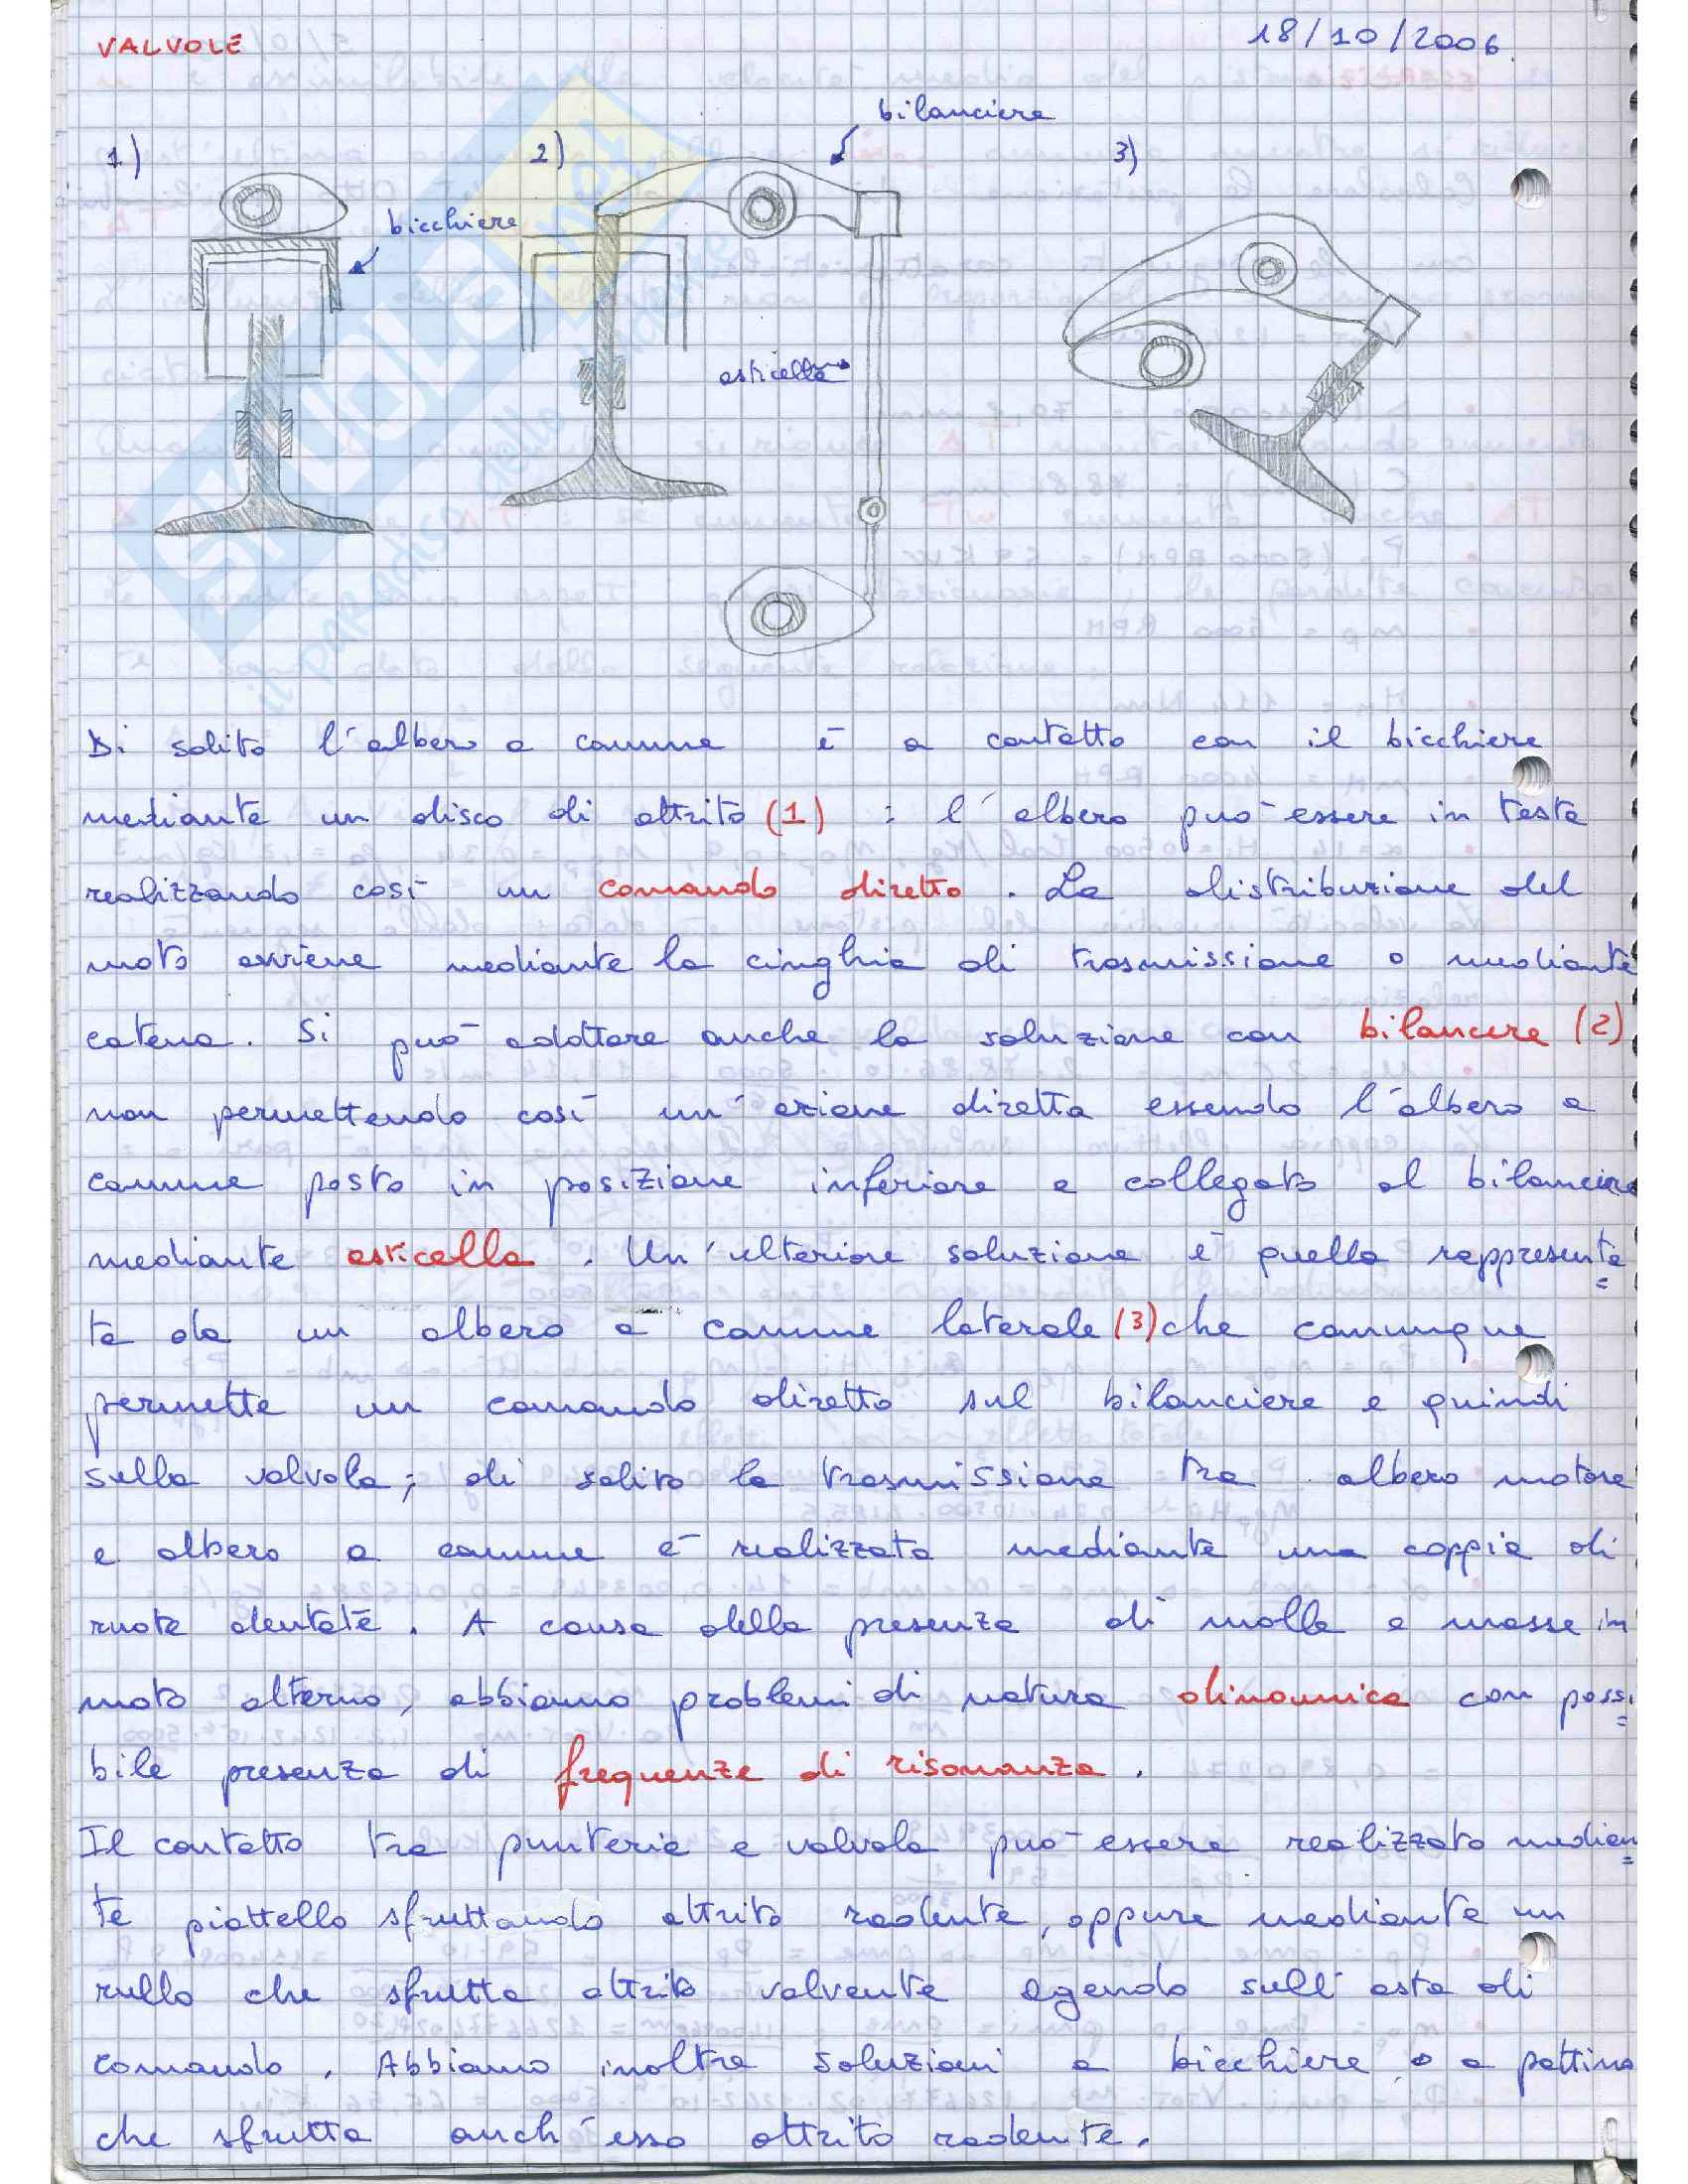 VALVOLE
18/10/2006
bilanciere
1)
2)
3)
bicchiere
asticella
SKUOLA.net
il paradiso dello studente
Di solito l'albero a camme è a contatto con il bicchiere
mediante un disco di attrito (1) : l'albero può essere in testa
realizzando così un comando diretto. La distribuzione del
moto avviene mediante la cinghia di trasmissione o mediante
catena. Si può adottare anche la soluzione con bilancere (2)
non permettendo così un'azione diretta essendo l'albero a
camme posto in posizione inferiore e collegato al bilanciere
mediante asticella. Un'ulteriore soluzione è quella rappresenta=
ta da un albero a camme laterale (3) che comunque
permette un comando diretto sul bilanciere e quindi
sulla valvola; di solito la trasmissione tra albero motore
e albero a camme è realizzata mediante una coppia di
ruote dentate. A causa della presenza di molle e masse in
moto alterno, abbiamo problemi di natura dinamica con possi=
bile presenza di frequenze di risonanza.
Il contatto tra punteria e valvola può essere realizzato median=
te piattello sfruttando attrito radente, oppure mediante un
rullo che sfrutta attrito volvente agendo sull'asta di
comando. Abbiamo inoltre soluzioni a bicchiere o a pattino
che sfrutta anch'esso attrito radente.